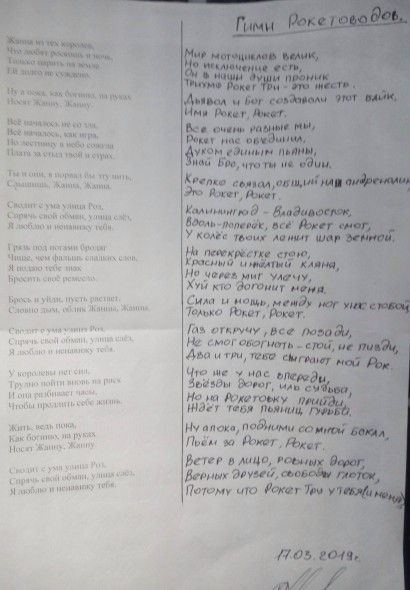 Гимн Рокетоводов.
Жанна из тех королев,
Что любят роскошь и ночь,
Только царить на земле
Ей долго не суждено.
Ну а пока, как богиню, на руках
Носят Жанну, Жанну.
Всё началось не со зла,
Всё началось, как игра,
Но лестницу в небо сожгла
Плата за стыд твой и страх.
Ты и она, я порвал бы эту нить,
Слышишь, Жанна, Жанна.
Сводит с ума улица Роз,
Спрячь свой обман, улица слёз,
Я люблю и ненавижу тебя.
Грязь под ногами бродяг
Чище, чем фальшь сладких слов,
Я подаю тебе знак
Бросить своё ремесло.
Брось и уйди, пусть растает,
Словно дым, облик Жанны, Жанны.
Сводит с ума улица Роз,
Спрячь свой обман, улица слёз,
Я люблю и ненавижу тебя.
У королевы нет сил,
Трудно пойти вновь на риск
И она разбивает часы,
Чтобы продлить себе жизнь.
Жить, ведь пока,
Как богиню, на руках
Носят Жанну, Жанну.
Сводит с ума улица Роз,
Спрячь свой обман, улица слёз,
Я люблю и ненавижу тебя.
Мир мотоциклов велик,
Но исключение есть,
Он в наши души проник
Триумф Рокет Три - это жесть.
Дьявол и Бог создавали этот байк,
Имя Рокет, Рокет.
Все очень разные мы,
Рокет нас объединил,
Духом единым пьяны,
Знай Бро, что ты не один.
Крепко связал, общий наш андреналин
Это Рокет, Рокет.
Калининград - Владивосток,
Вдоль-поперёк, всё Рокет смог,
У колёс твоих лежит шар земной.
На перекрёстке стою,
Красный и жёлтый кляня,
Но через миг улечу,
Хуй кто догонит меня.
Сила и мощь, между ног у нас с тобой
Только Рокет, Рокет.
Газ откручу, все позади,
Не смог обогнать - стой, не пизди,
Два и три, тебе сыграет мой Рок.
Что же у нас впереди,
Звёзды дорог, иль судьба,
Но на Рокетовку прийди,
Ждёт тебя пьяниц гурьба.
Ну а пока, подними со мной бокал,
Пьём за Рокет, Рокет.
Ветер в лицо, ровных дорог,
Верных друзей, свободы глоток,
Потому что Рокет Три у тебя (и меня)
17.03.2019г.